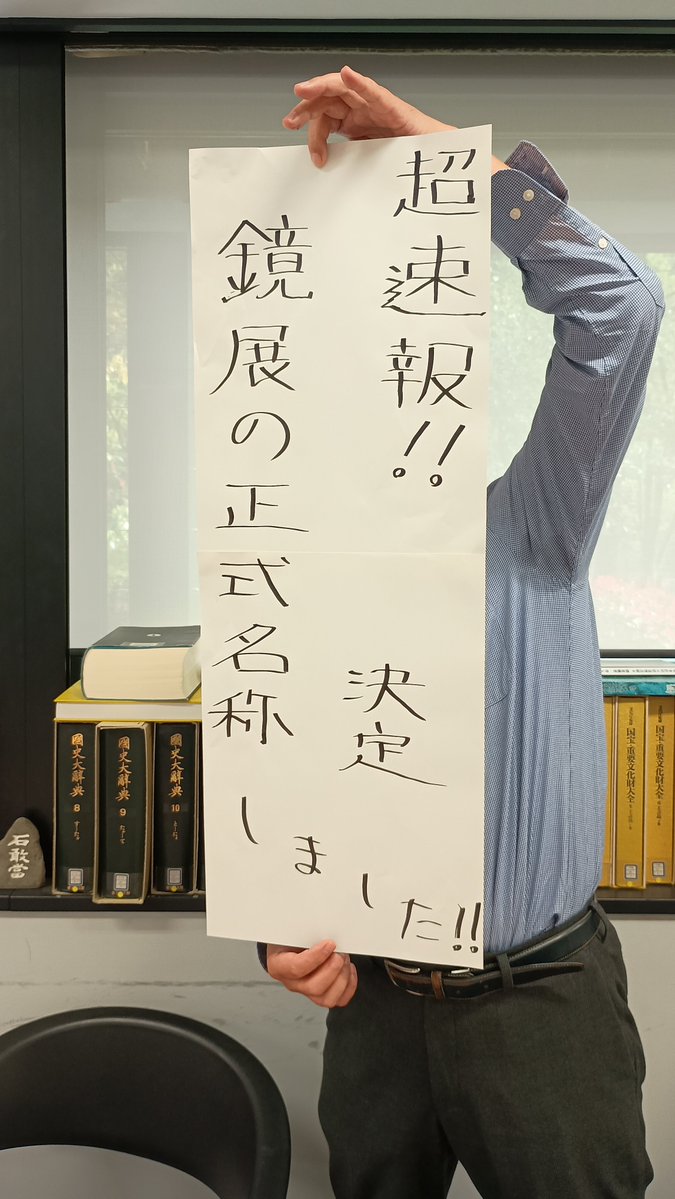 超速報!!
鏡展の正式名称
決定
しました!!
國史大辭典
8
國史大辭典
9
國史大辭典
10
石敢當
国宝・重要文化財大全
国宝・重要文化財大全